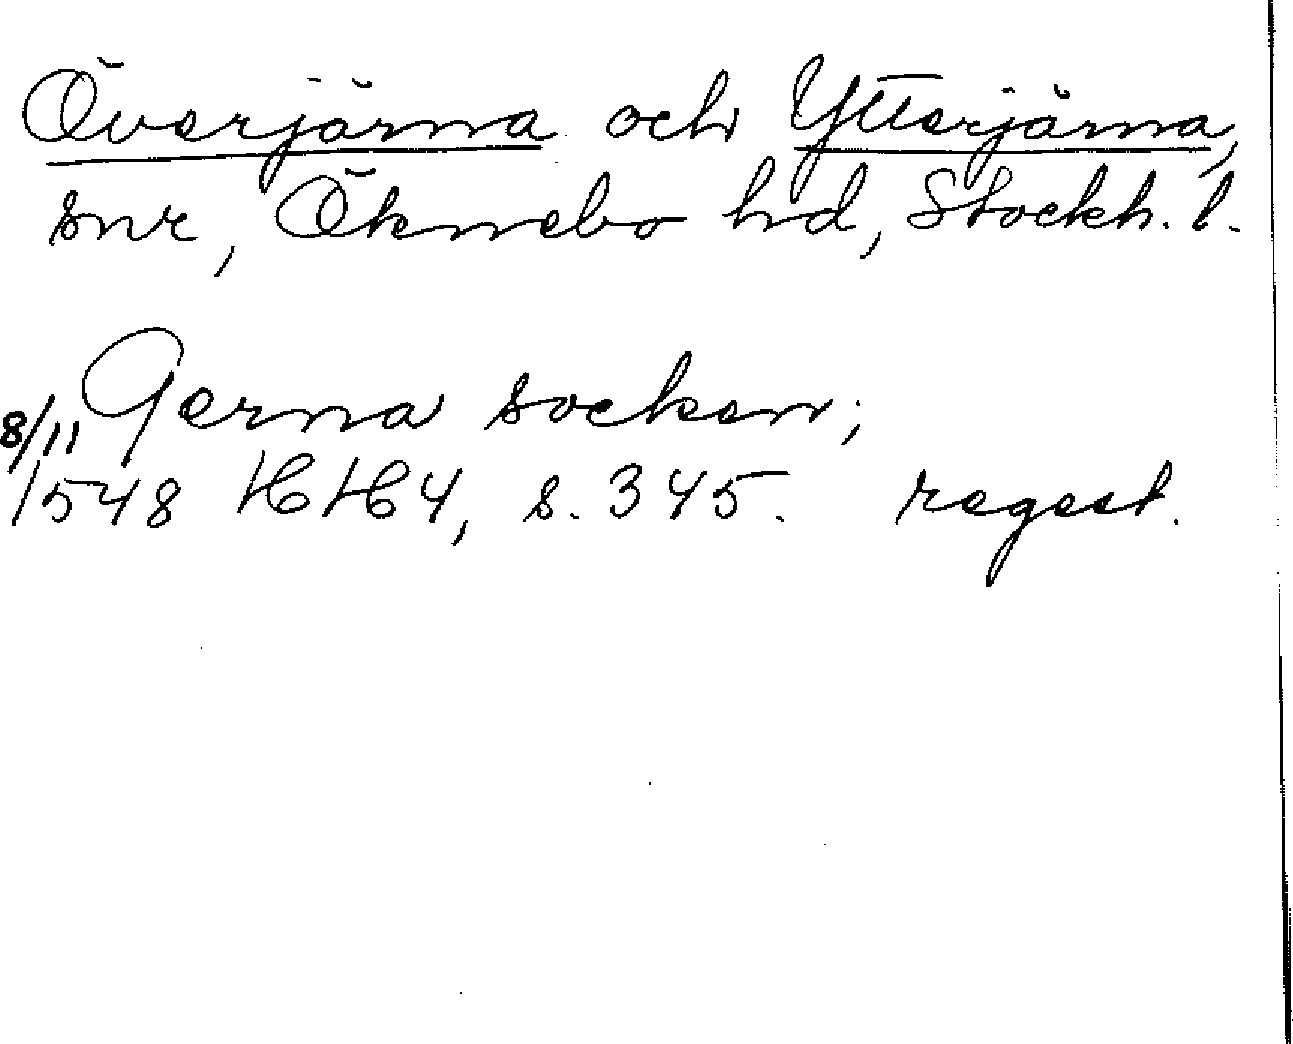 Överjärna och Ytterjärna,
snr, Öknebo hd, Stockh. l.
Gerna socken;
8/11
1548 HH 4, s. 345. regest.